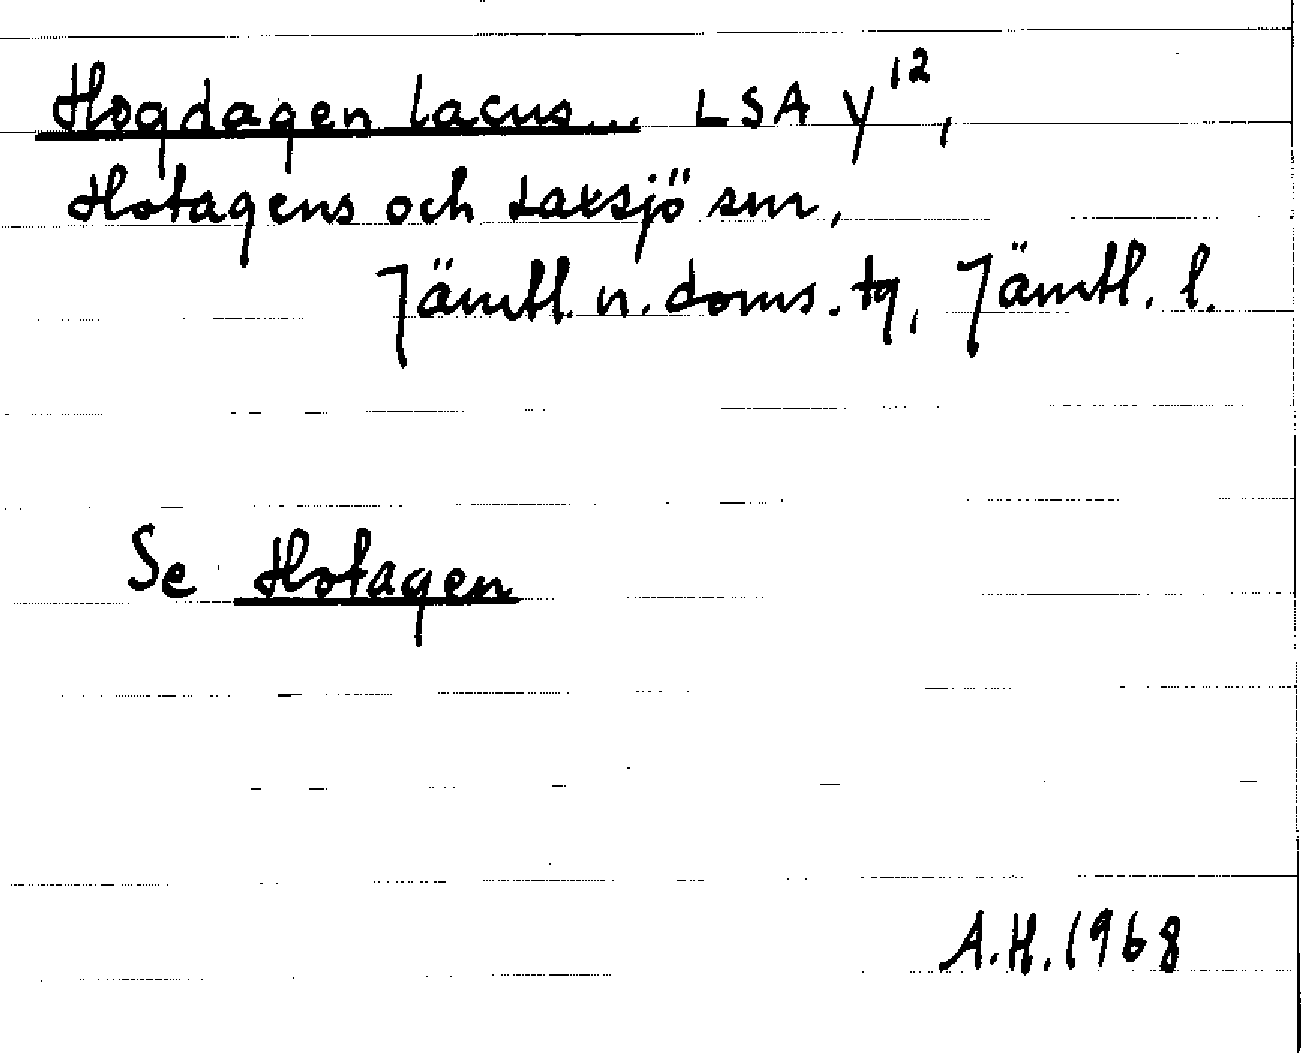 Hogdagen lacus... LSA y¹²,
Hotagens och Laxsjö snr,
Jämtl. n. doms. tg, Jämtl. l.
Se Hotagen
A.H. 1968